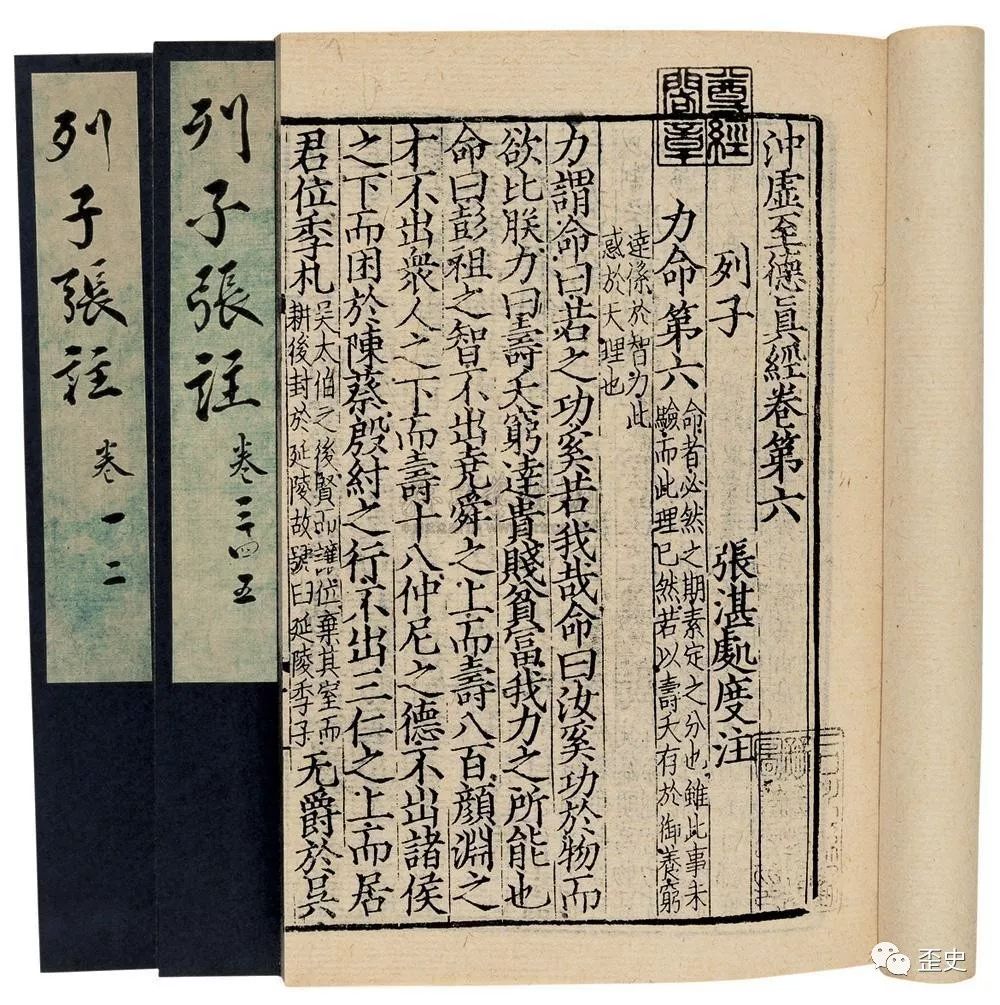 沖虛至德眞經卷第六
列子 張湛處度注
力命第六 命者必然之期素定之分也雖此事未
驗而此理已然若以壽夭有於御養窮
達係於智力此
惑於大理也
力謂命曰若之功奚若我哉命曰汝奚功於物而
欲比朕力曰壽夭窮達貴賤貧富我力之所能也
命曰彭祖之智不出堯舜之上而壽八百顏淵之
才不出衆人之下而壽十八仲尼之德不出諸侯
之下而困於陳蔡殷紂之行不出三仁之上而居
君位季札 吳太伯之後賢而讓位棄其室而
耕後封於延陵故號曰延陵季子 无爵於吳
尊經
閣章
列子張註 卷三四五
列子張註 卷一二
歪史